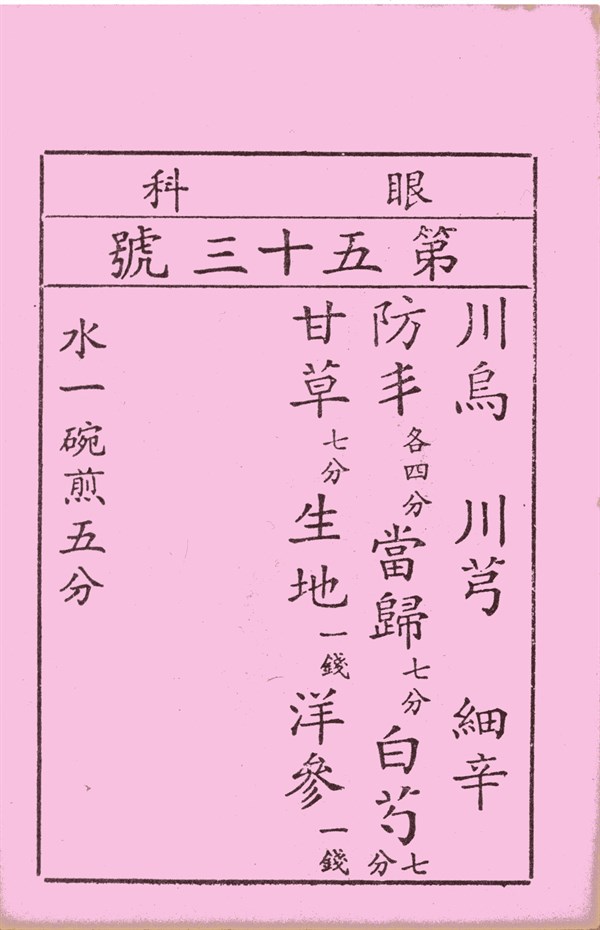 眼科
第五十三號
川烏 川芎 細辛
防丰各四分當歸七分白芍七分
甘草七分生地一錢洋參一錢
水一碗煎五分